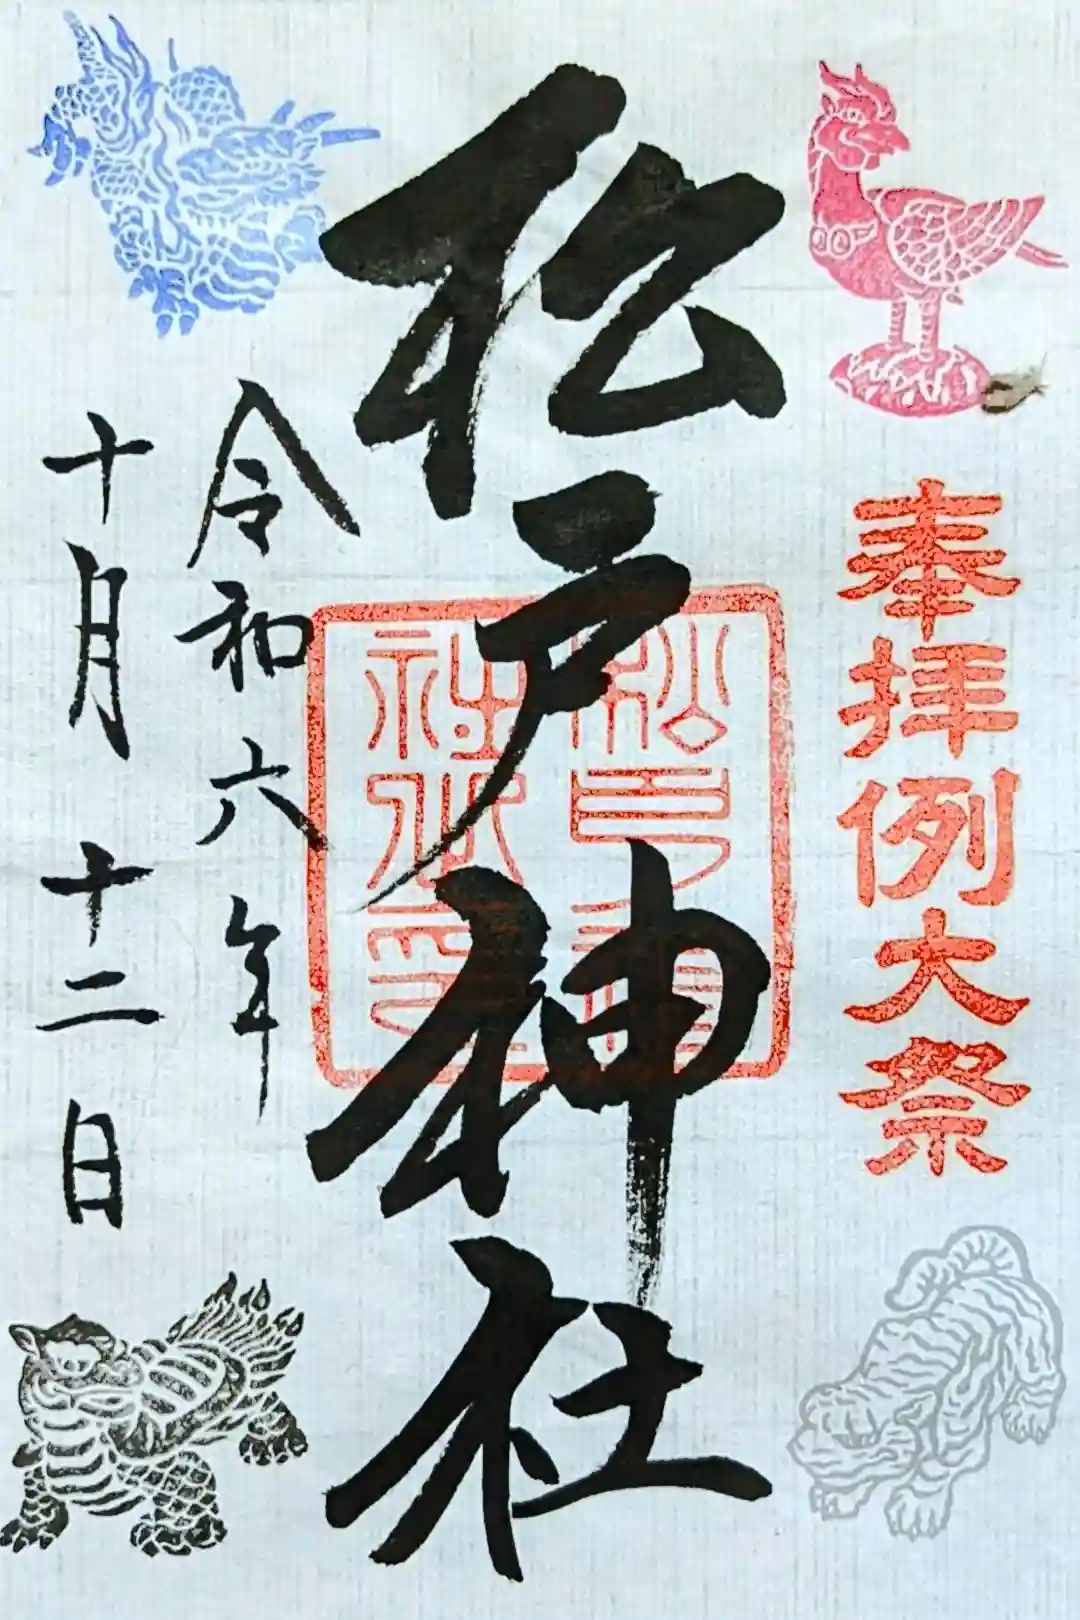 奉拝例大祭
松戸神社
松戸神社之印
令和六年
十月十二日